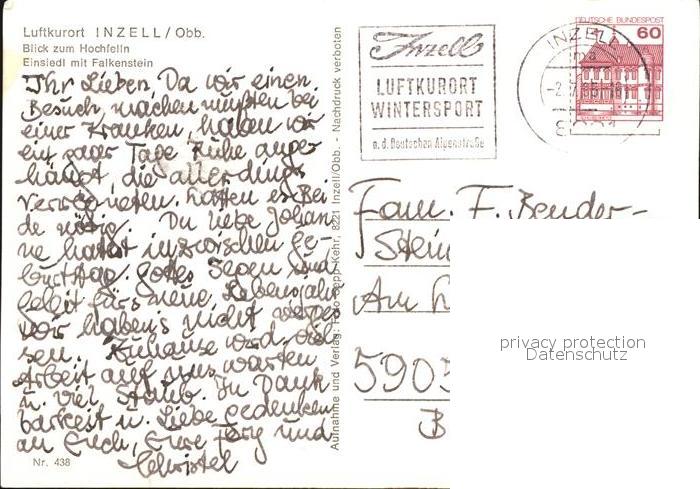 Luftkurort INZELL/Obb.
Blick zum Hochfelln
Einsiedl mit Falkenstein
Ihr Lieben, Da wir einen
Besuch machen mußten bei
einer Kranken, haben wir
ein paar Tage Ruhe ange-
hängt, die allerdings
verregneten. Hatten es Bei-
de nötig. Du liebe Johan-
ne hattest inzwischen Ge-
burtstag. Gottes Segen und
Geleit fürs neue Lebensjahr
wir haben's nicht verges-
sen. Zuhause wird
Arbeit auf uns warten
u. viel Staub. In Dank
barkeit u. Liebe gedenken
an Euch, Eure Jörg und
Christel
Nr. 438
Aufnahme und Verlag: Foto Sepp Kehr, 8221 Inzell/Obb. - Nachdruck verboten
Inzell
LUFTKURORT
WINTERSPORT
a. d. Deutschen Alpenstraße
INZELL
DEUTSCHE BUNDESPOST
60
Fam. F. Bender-
Stein
Am
5905
privacy protection
Datenschutz